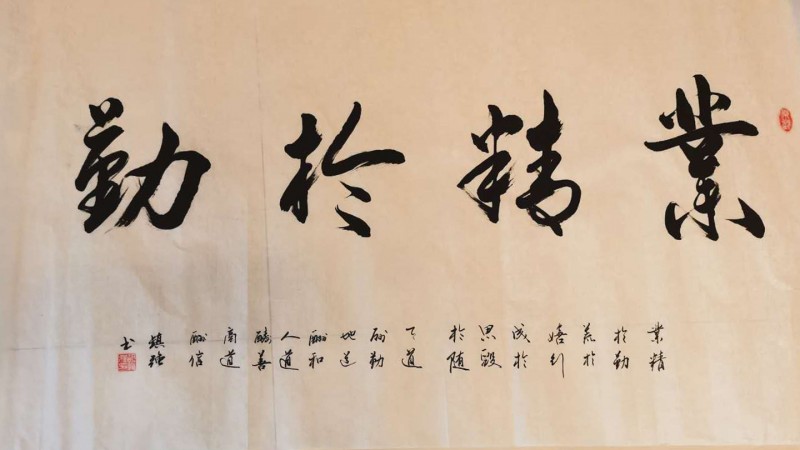 業精於勤
業精
於勤
荒於
嬉行
成於
思毀
於随
天道
酬勤
地道
酬和
人道
酬善
商道
酬信
书